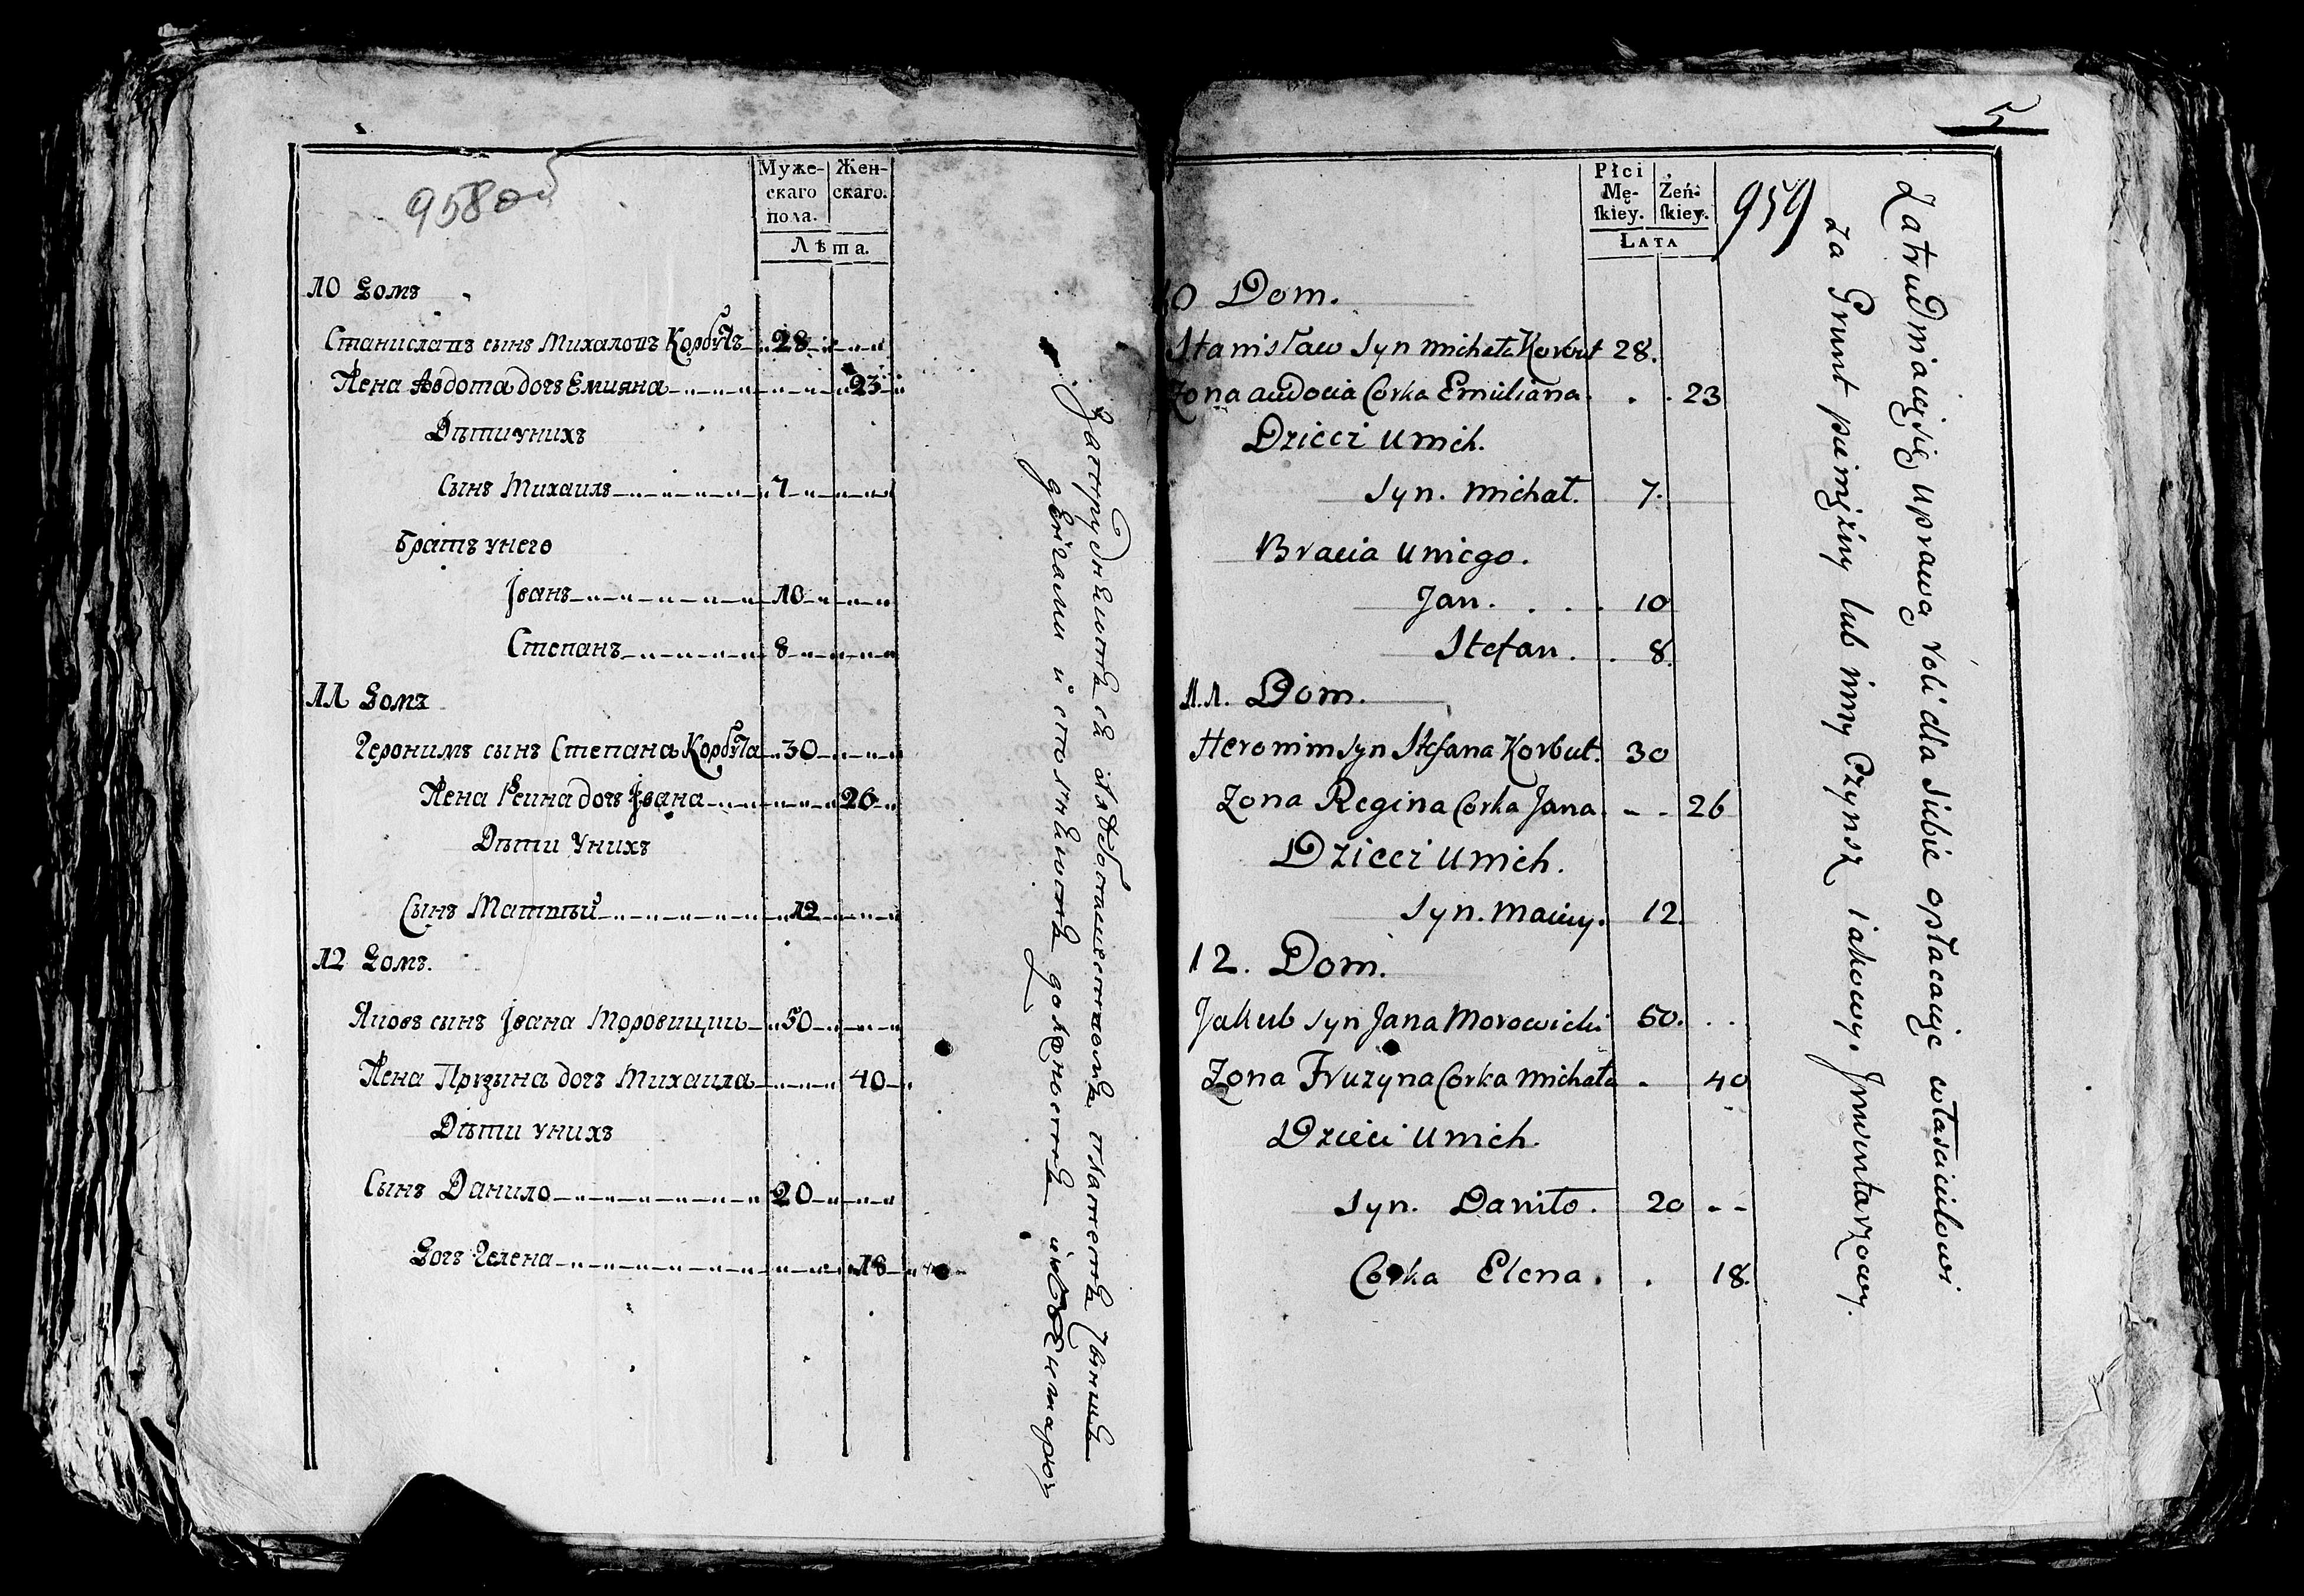 958 об
Муже-
скаго
пола.
Жен-
скаго.
Лѣта.
10 Домъ
Станиславъ сынъ Михаловъ Корбутъ 28
Жена Авдота дочъ Емияна 23
Дѣти унихъ
Сынъ Михаилъ 7
братъ унего
Јванъ 10
Степанъ 8
11 Домъ
Геронимъ сынъ Степана Корбута 30
Жена Реина дочъ Јвана 26
Дѣти Унихъ
Сынъ Матвѣй 12
12 Домъ.
Яковъ сынъ Јвана Моровицки 50
Жена Прузына дочъ Михаила 40
Дѣти унихъ
Сынъ Данило 20
Дочъ Гелена 18
5
Płci
Mę-
ſkiey.
Żeń-
ſkiey.
LATA
959
10 Dom.
Stanisław Syn Michała Korbut 28.
Zona audocia Corka Emiliana . . 23
Dzieci unich.
Syn. Michał. 7.
Bracia uniego.
Jan. . . . 10
Stefan. . 8.
11. Dom.
Heronim Syn Stefana Korbut. 30
Zona Regina Corka Jana. - - 26
Dzieci unich.
Syn. Maciey. 12.
12. Dom.
Jakub Syn Jana Morowicki 50. . .
Zona Fruzyna Corka Michała . 40
Dzieci unich.
Syn. Daniło. 20 - -
Corka Elena. . 18.
Zatrudniaiąsię uprawą roli dla siebie opłacaiąc właścicielowi
za Grunt pieniężny lub inny Czynsz iakowy. Jnwentarzowy.